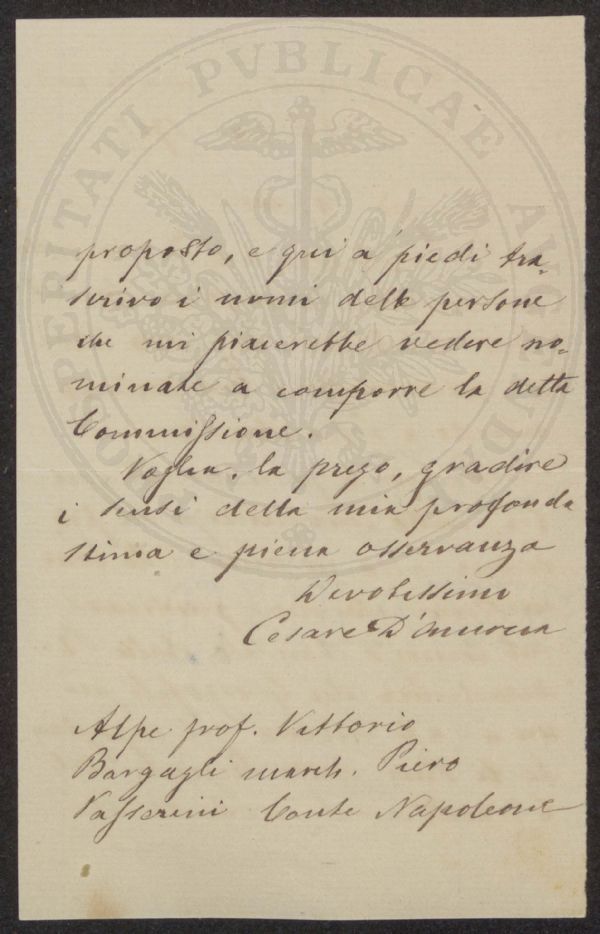 PROSPERITATI PVBLICAE AVGENDAE
proposto, e qui a' piedi tra-
scrivo i nomi delle persone
che mi piacerebbe vedere no-
minate a comporre la detta
Commissione.
Voglia, la prego, gradire
i sensi della mia profonda
stima e piena osservanza
Devotissimo
Cesare D'Ancona
Alpe prof. Vittorio
Bargagli march. Piero
Passerini Conte Napoleone